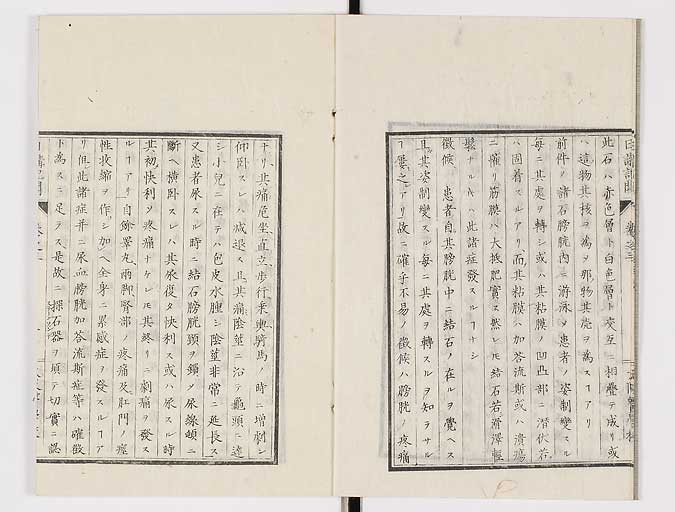 此石ハ赤色層ト白色層ト交互ニ相疊テ成リ或
ハ造物其核ヲ為ヲ那物其尨ヲ為スヿアリ
前件ノ諸石膀胱內ニ游泳ヲ患者ノ姿制變スル
每ニ其處ヲ轉シ或ハ其粘膜ノ凹凸部ニ潛伏若ク
ハ固着スルアリ而其粘膜ハ加答流斯或ハ潰瘍
ニ罹リ筋膜ハ大抵肥實ス然レモ結石若滑澤輕
ナルハ此諸症發スルヿナシ
徵候 患者自其膀胱中ニ結石ノ在ルヲ覺ヘス
且其姿制變スル每ニ其處ヲ轉スルヲ知ラサル
ヿ屢之アリ故ニ確乎不易ノ徵候ハ膀胱ノ疼痛
ナリ其痛危坐直立步行乘輿騎馬ノ時ニ增劇シ
仰臥スレハ減退ス且其痛陰莖ニ沿テ龜頭ニ達
シ小兒ニ在テハ包皮水腫シ陰莖非常ニ延長ス
又患者尿スル時ニ結石膀胱頸ヲ鎖メ尿線頓ニ
斷ヘ橫臥スレハ其尿復タ快利ス或ハ尿スル時
其初快利ソ疼痛ナケレモ其終リニ劇痛ヲ發ス
ルヿアリ自餘睪丸兩脚腎部ノ疼痛及肛門ノ
性收縮ヲ作シ加ヘ全身ニ累感症ヲ發スルヿア
リ但此諸症并ニ尿血膀胱加答流斯症等ハ確徵
ト為スニ足ラス是故ニ探石器ヲ須テ切實ニ認